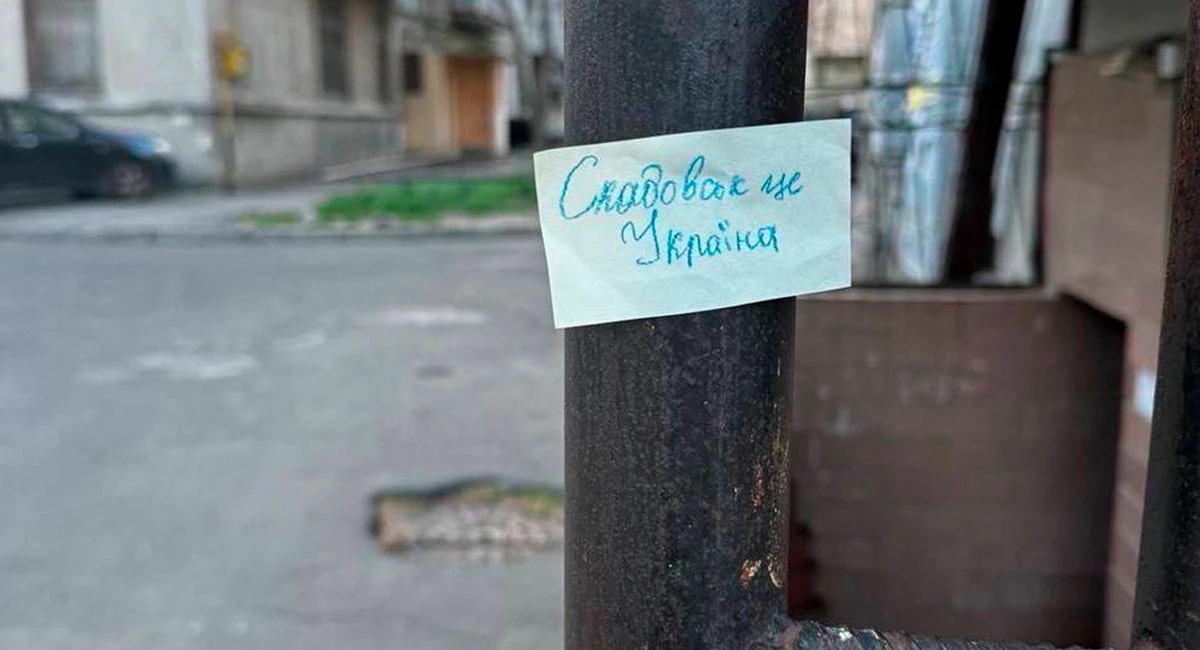 Скадовск це
Україна